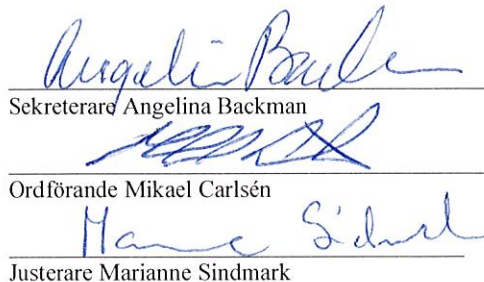 Angelin Backm
Sekreterare Angelina Backman
Ordförande Mikael Carlsén
Justerare Marianne Sindmark